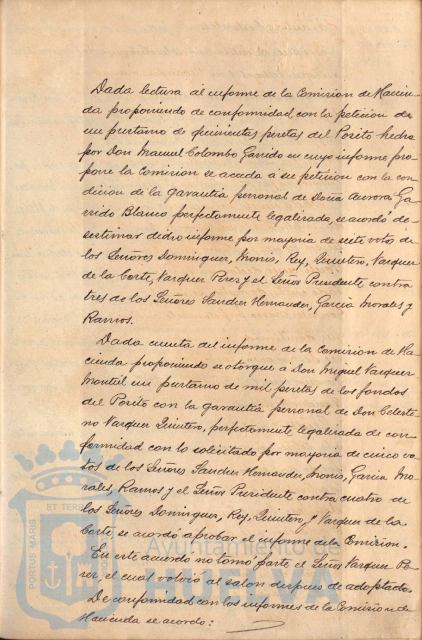 Dada lectura al informe de la Comision de Hacien-
da proponiendo de conformidad con la peticion de
un prestamo de quinientas pesetas del Posito hecha
por Don Manuel Colombo Garrido en cuyo informe pro
pone la Comision se acceda a su peticion con la con
dicion de la garantia personal de Doña Aurora Ga
rrido Blanco perfectamente legalizada, se acordó de
sestimar dicho informe por mayoria de siete votos de
los Señores Dominguez, Monis, Rey, Quintero, Vazquez
de la Corte, Vazquez Perez y el Señor Presidente contra
tres de los Señores Sanchez Hernandez, Garcia Morales y
Ramos.
Dada cuenta del informe de la Comision de Ha
cienda proponiendo se otorgue á Don Miguel Vazquez
Montiel un prestamo de mil pesetas de los fondos
del Posito con la garantia personal de Don Celesti
no Vazquez Quintero, perfectamente legalizada de con
formidad con lo solicitado por mayoria de cinco vo
tos de los Señores Sanchez Hernandez, Monis, Garcia Mo
rales, Ramos y el Señor Presidente contra cuatro de
los Señores Dominguez, Rey, Quintero, y Vazquez de la
Corte, se acordó aprobar el informe de la Comision.
En este acuerdo no tomó parte el Señor Vazquez Pe
rez, el cual volvió al salon despues de adoptado.
De conformidad con los informes de la Comision de
Hacienda se acordó:
PORTUS MARIS
ET TERRE
Ayuntamiento de